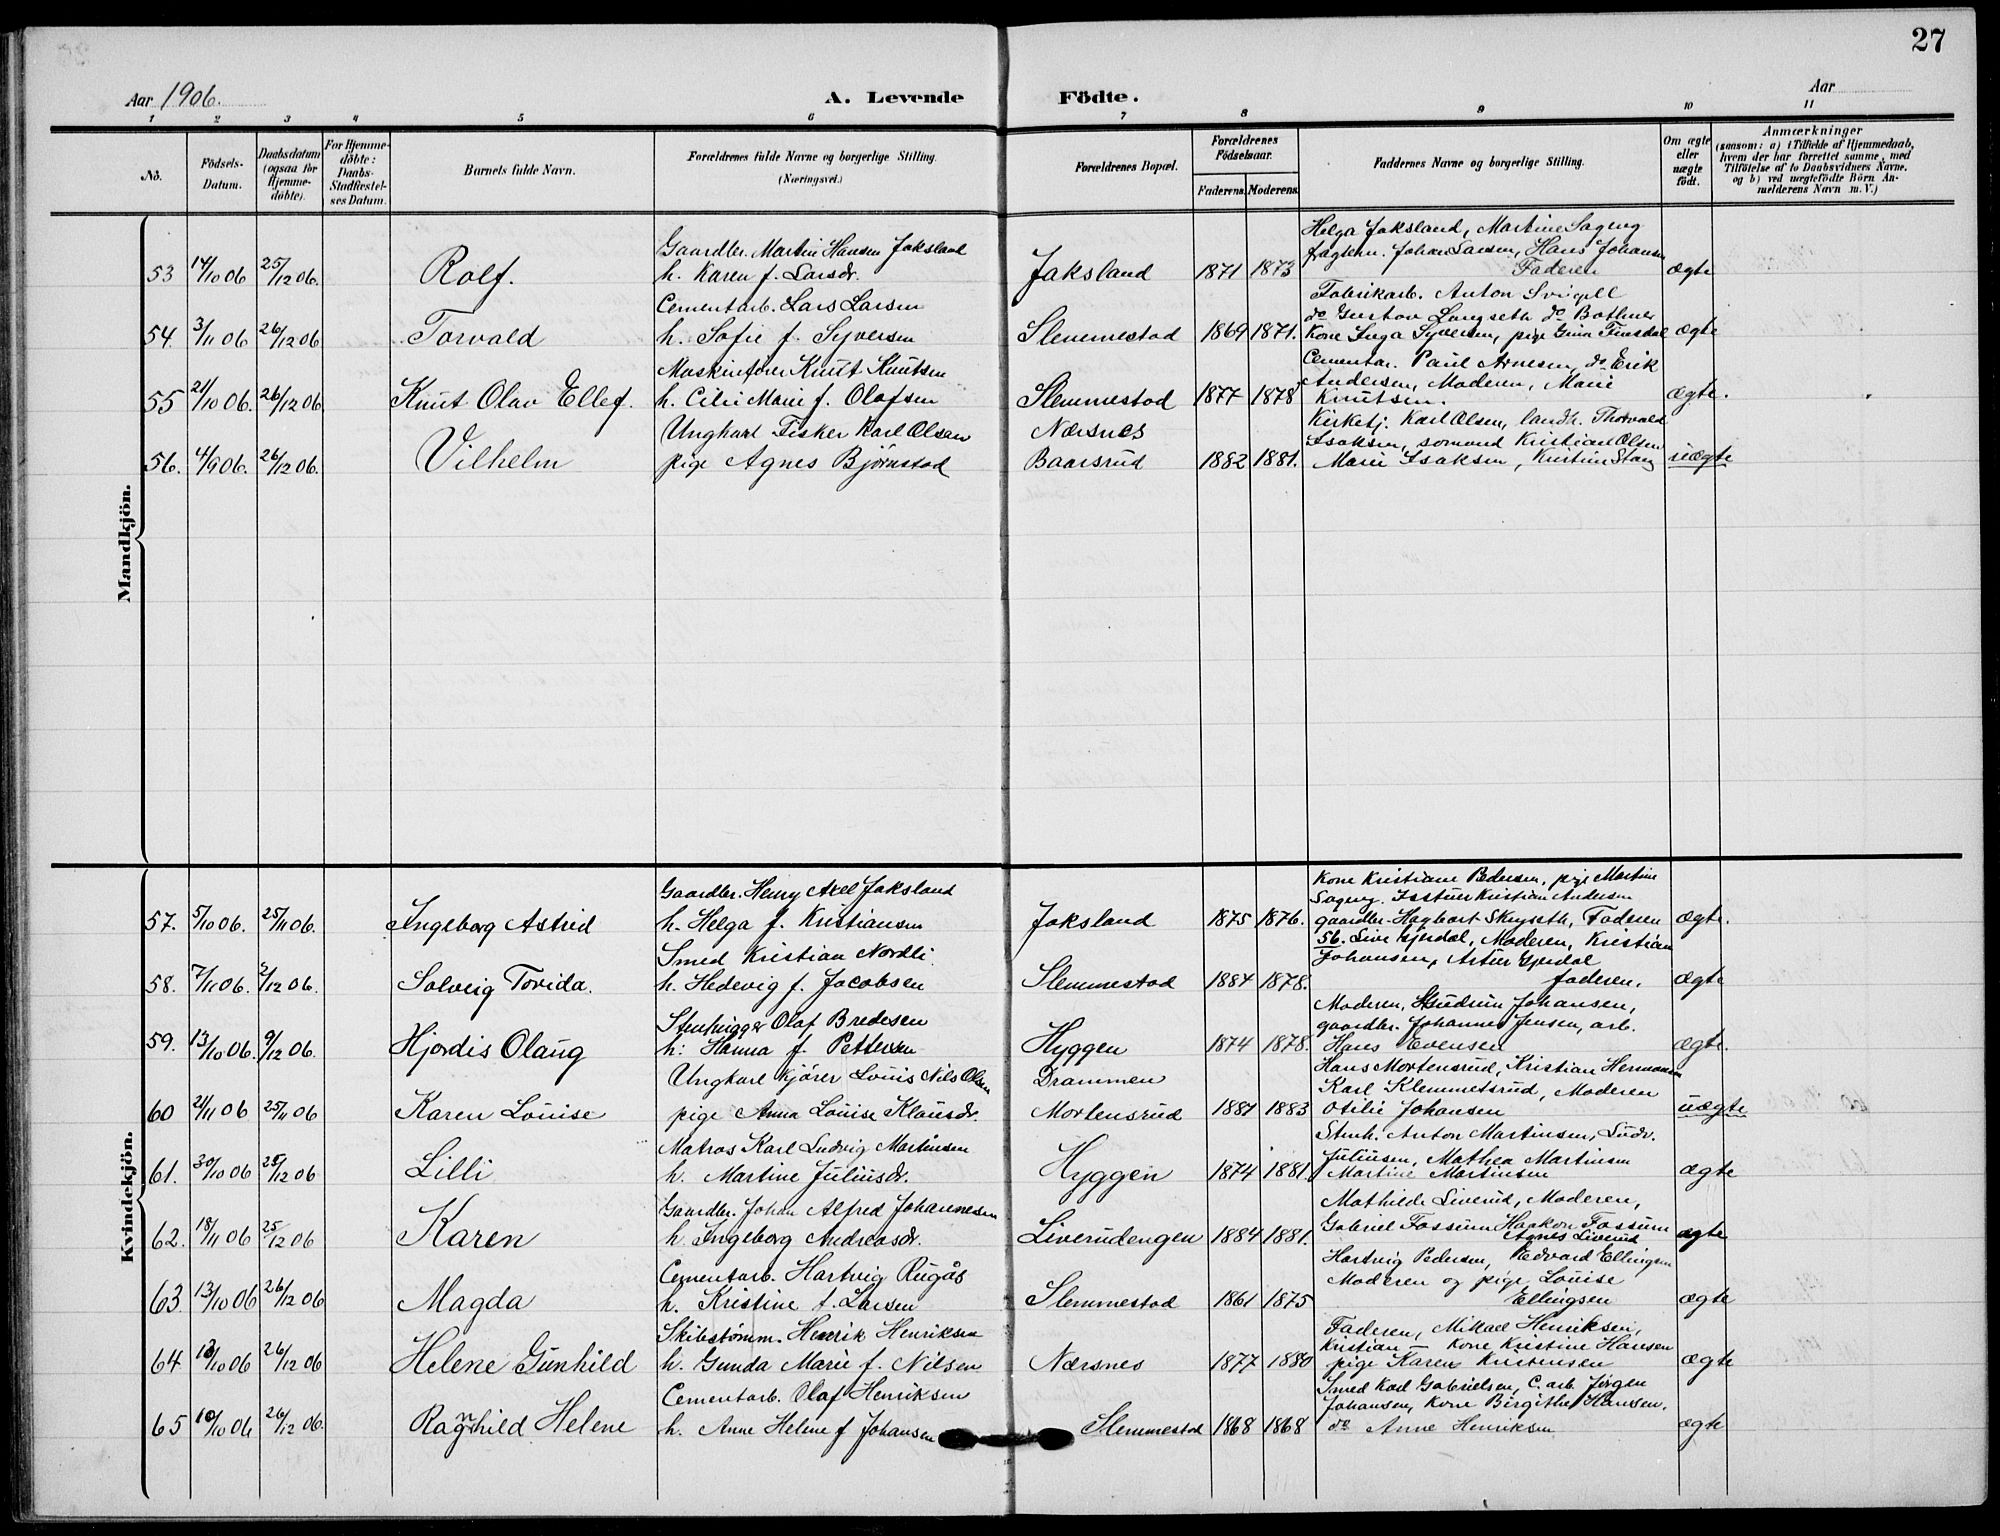 27
Aar 1906.
A. Levende Födte.
Aar
1 2 3 4 5 6 7 8 9 10 11
No.
Födsels-Datum.
Daabsdatum (ogsaa for Hjemme-döbte).
For Hjemme-döbte: Daabs-Stadfæstel-ses Datum.
Barnets fulde Navn.
Forældrenes fulde Navne og borgerlige Stilling. (Næringsvei.)
Forældrenes Bopæl.
Forældrenes Födselsaar.
Faderens. Moderens.
Faddernes Navne og borgerlige Stilling.
Om ægte eller uægte födt.
Anmærkninger
(saasom: a) i Tilfælde af Hjemmedaab, hvem der har forrettet samme, med Tilföielse af to Daabsvidners Navne, og b) ved uægtefödte Börn An-melderens Navn m. V.)
Mandkjön.
Helga Jaksland, Martine Sageng
Gaardbr. Martin Hansen Jaksland
fragtehn. Johan Larsen, Hans Johansen
53 14/10 06 25/12 06. Rolf. h. Karen f. Larsdr. Jaksland 1871 1873 Faderen ægte
Cementarb. Lars Larsen
Fabrikarb. Anton
do Gustav Langseth do Bothner
54. 3/11 06 26/12 06 Torvald h. Sofie f. Syversen Slemmestad 1869 1871. Kone Inga Syversen, pige Gina ægte
Maskinfører Knut Knutsen
Cementar. Paul Arnesen, do Erik
Andersen, Moderen, Marie
55 21/10 06. 26/12 06 Knut Olav Ellef. h. Marie f. Olafsen Slemmestad 1877 1878 Knutsen. ægte.
Ungkarl Fisker Karl Olsen Nærsnes
Kirketj. Karl Olsen, landh. Thorvald
Isaksen, somand Kristian Olsen
56. 4/9 06. 26/12 06. Vilhelm pige Agnes Bjørnstad Baarsrud 1882 1881. Marie Isaksen, Kristine uægte
Kvindekjön.
Kone Kristiane Pedersen, pige Martine
Gaardbr. Henry Axel Jaksland
Sageng. Kristian Andersen
57. 5/10 06. 25/11 06. Ingeborg Astrid h. Helga f. Kristiansen Jaksland 1875 1876. gaardbr. Hagbart Faderen ægte.
Smed Kristian Nordli.
56. Live Gjerdal, Moderen, Kristian
Johansen, Artur Gjerdal
58. 7/11 06. 2/12 06. Solveig Torida. h. Hedevig f. Jacobsen Slemmestad 1884 1878. faderen. ægte
Stenhugger Olaf Bredesen
Moderen, Gudrun Johansen,
gaardbr. Johannes Jensen, arb.
59. 13/10 06. 9/12 06. Hjordis Olaug h. Hanna f. Pettersen Hyggen 1874 1878. Hans Evensen ægte.
Ungkarl Kjører Louis Nils Olsen Drammen
Hans Mortensrud, Kristian Hermansen
Karl Klemmetsrud, Moderen
60 21/11 06 25/11 06 Karen Louise pige Anna Louise Klausdr. Mortensrud 1881 1883 Otilie Johansen uægte
Matros Karl Ludvig Martinsen
Stenh. Anton Martinsen, Ludv.
Juliusen, Mathea Martinsen
61. 30/10 06 25/12 06 Lilli h. Martine Juliusdr. Hyggen 1874 1881. Martine Martinsen ægte
Gaardbr. Johan Alfred Johannesen
Mathilde Liverud, Moderen,
Gabriel Fossum Haakon Fossum
62. 18/11 06 25/12 06 Karen h. Ingeborg Andreasdr. Liverudengen 1884 1881. Agnes Liverud ægte
Cementarb. Hartvig Rugås
Hartvig Pedersen, Edvard Ellingsen
Moderen og pige Louise
63 13/10 06 26/12 06 Magda h. Kristine f. Larsen Slemmestad 1861 1875 Ellingsen ægte
Skibstømm. Henrik Henriksen
Faderen, Mikael Henriksen,
Kristian — Kone Kristine Hansen
64 /10 06 26/12 06 Helene Gunhild h. Gunda Marie f. Nilsen Nærsnes 1877 1880 pige Karen Kristensen ægte
Cementarb. Olaf Henriksen
Smed Karl Gabrielsen, C. arb. Jørgen
Johansen, Kone Birgithe Hansen.
65 10/10 06 26/12 06. Ragnhild Helene h. Anne Helene f Johansen Slemmestad 1868 1868 do Anne Henriksen ægte